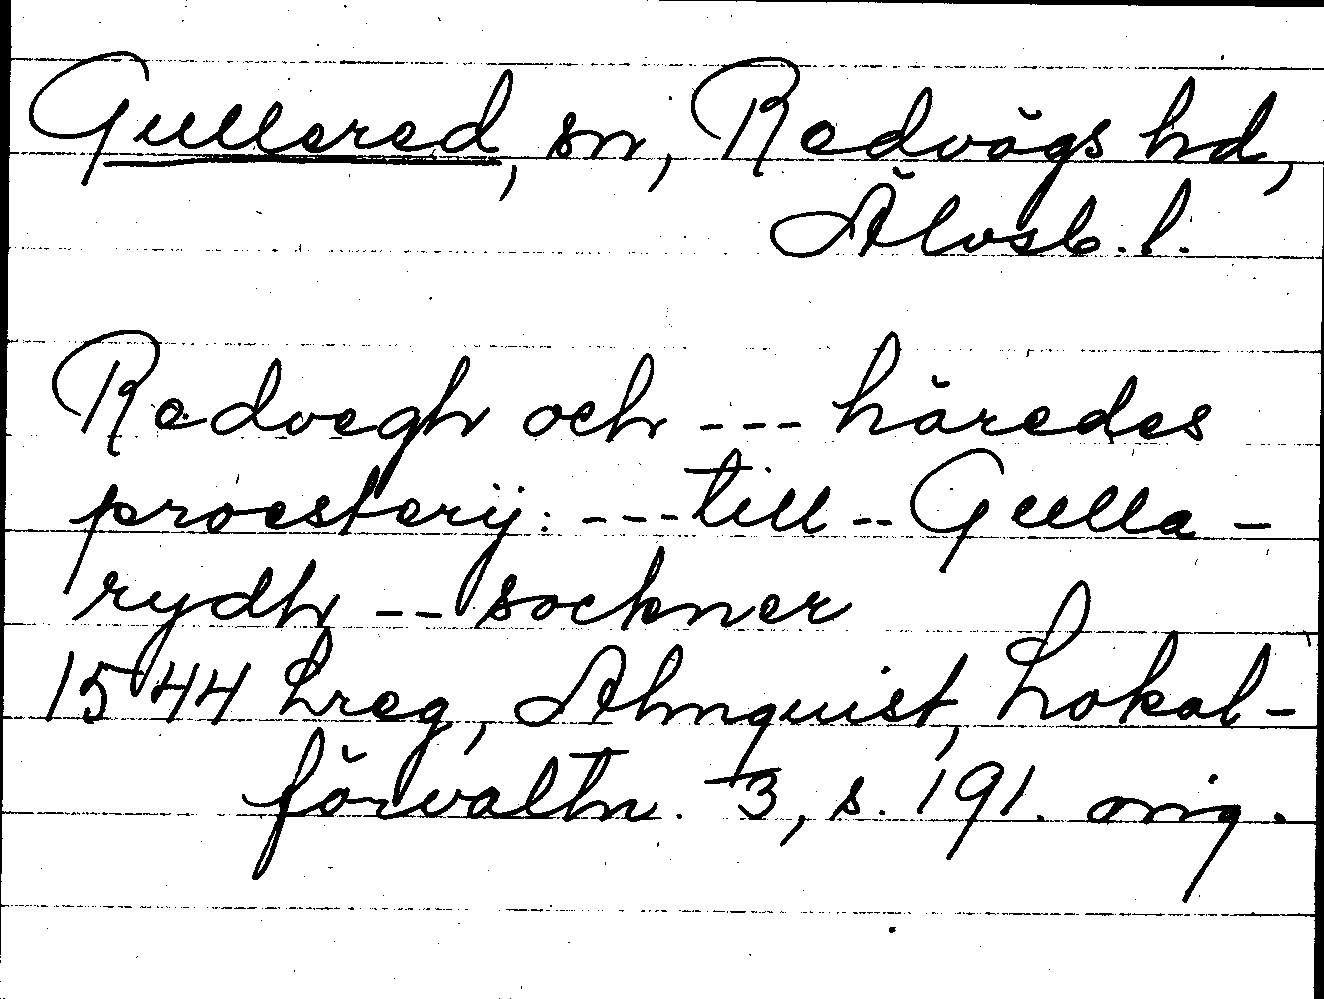 Gullered, sn, Redvägs hd,
Älvsb. l.
Redvegh och --- häredes
proesterij: --- till -- Gulla-
rydh -- sockner
1544 Lreg, Almquist, Lokal-
förvaltn. 3, s. 191. orig.